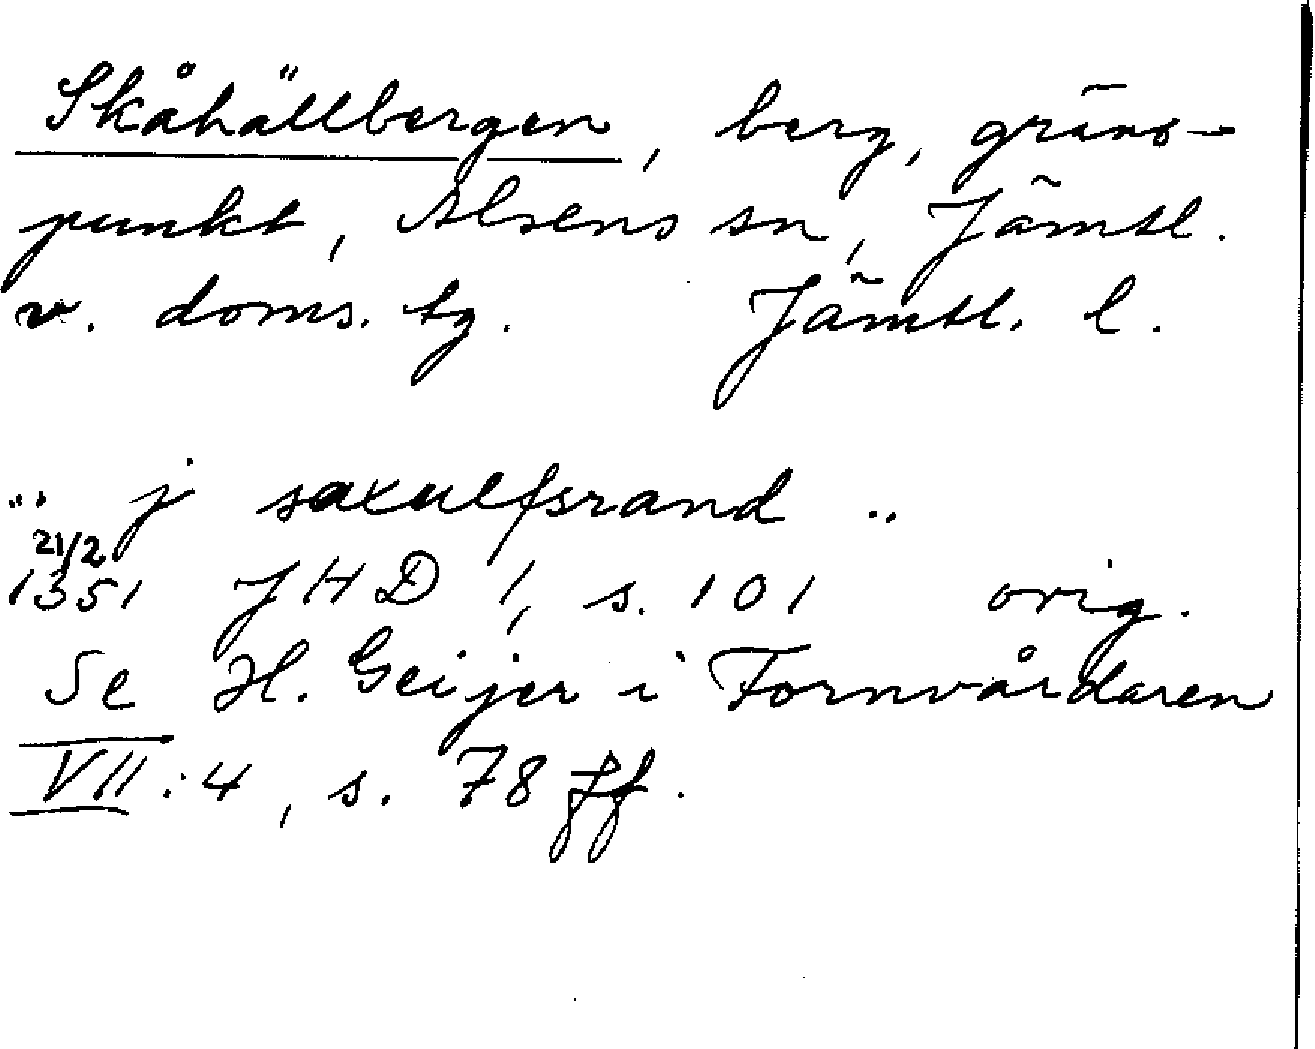 Skåhällbergen, berg, gräns-
punkt, Alsens sn, Jämtl.
v. doms. tg. Jämtl. l.
.. j saxulfsrand ..
21/2
1351 JHD 1, s. 101 orig.
Se H. Geijer i Fornvårdaren
VII:4, s. 78 ff.